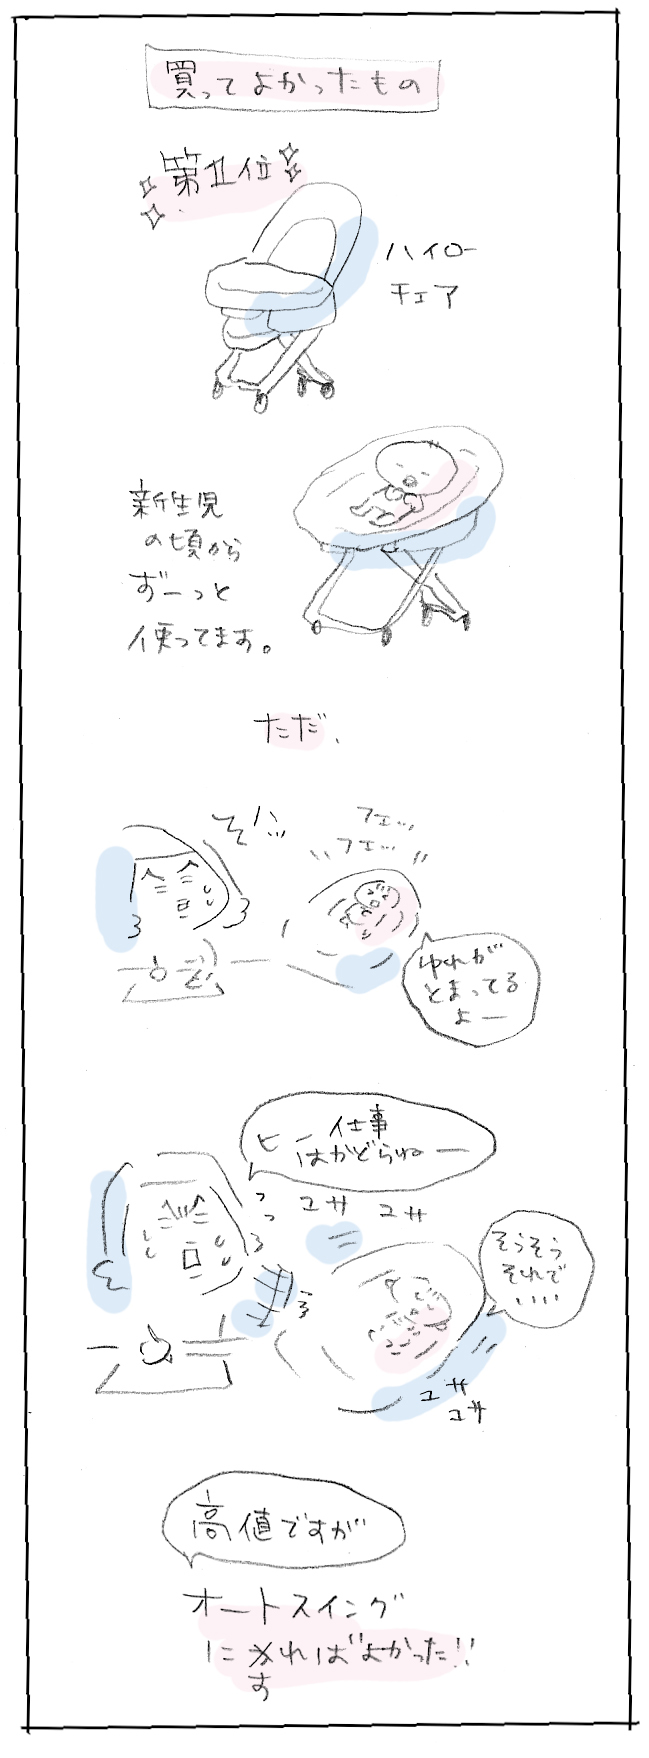 買ってよかったもの
第1位
ハイロー
チェア
新生児
の頃から
ずーっと
使ってます。
ただ、
そハッ
フエッ…
フエッ…
ゆれが
とまってる
よー
ヒー 仕事
はかどらねー
ユサ ユサ
そうそう
それで
いいい
ユサ
ユサ
高値ですが
オートスイング
にすればよかった!!